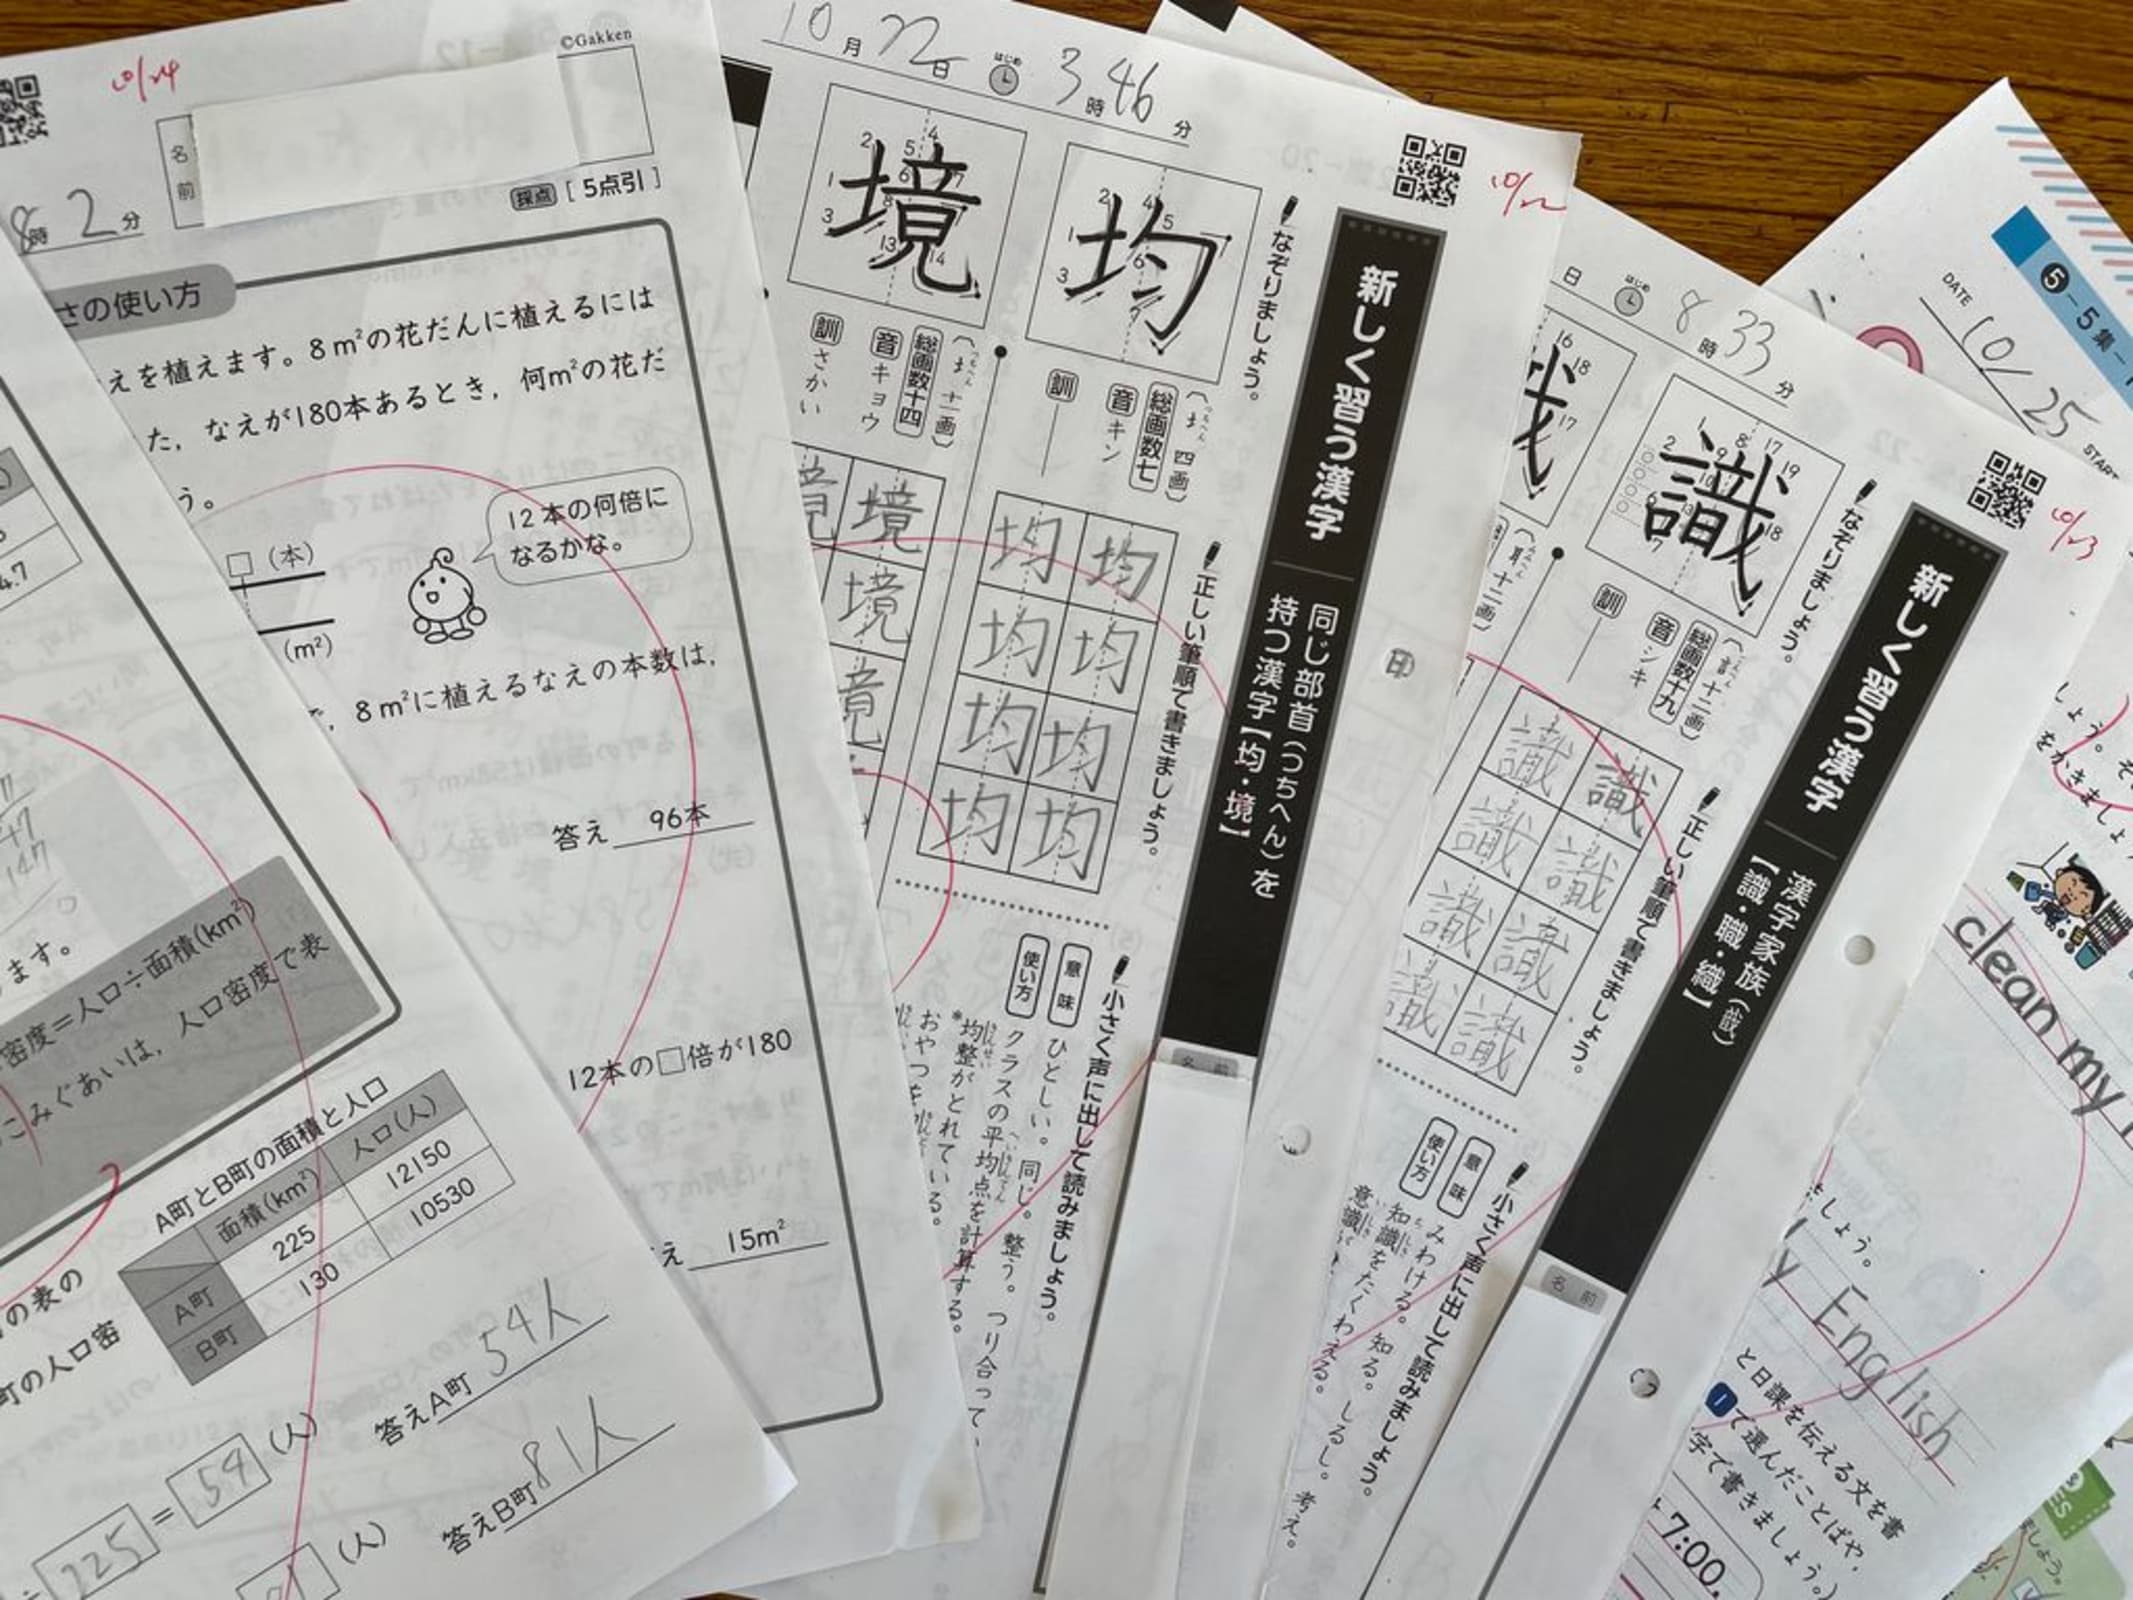 ©Gakken
10/24
名前
8時 2分
採点 [ 5点引 ]
さの使い方
えを植えます。8m²の花だんに植えるには
た，なえが180本あるとき，何m²の花だ
う。
12本の何倍に
なるかな。
□（本）
（m²）
，8m²に植えるなえの本数は，
答え 96本
12本の□倍が180
え 15m²
4.7
47
147
ます。
密度＝人口÷面積(km²)
こみぐあいは，人口密度で表
A町とB町の面積と人口
面積(km²) 人口(人)
A町 225 12150
B町 130 10530
の表の
町の人口密
答えA町 54人
225 = 54 (人)
答えB町 81人
(人)
10月22日 はじめ 3時46分
10/22
新しく習う漢字
同じ部首（つちへん）を
持つ漢字【均・境】
名前
なぞりましょう。
均
1 2 3 4 5 6 7
（土 つちへん 四画）
総画数七
音 キン
訓 ―
境
1 2 3 4 5 6 7 8 13 14
（土 つちへん 十一画）
総画数十四
音 キョウ
訓 さかい
正しい筆順で書きましょう。
均 均
均 均
均 均
均 均
境 境
境
境
小さく声に出して読みましょう。
意味 ひとしい。同じ。整う。つり合ってい
使い方 クラスの平均点を計算する。
*均整がとれている。
印
日 はじめ 8時33分
10/23
新しく習う漢字
漢字家族（戠）
【識・職・織】
名前
なぞりましょう。
識
（言 ごんべん 十二画）
総画数十九
音 シキ
訓 ―
16 18 17
正しい筆順で書きましょう。
識 識
識 識
識 識
識 識
小さく声に出して読みましょう。
意味 みわける。知る。しるし。考え。
使い方 知識をたくわえる。
意識
5-5集-
DATE 10/25
START
しょう。そ
をかきましょ
clean my
ましょう。
y English
と日課を伝える文を書
1で選んだことばや，
字で書きましょう。）
7:00.
ES
ましょう。